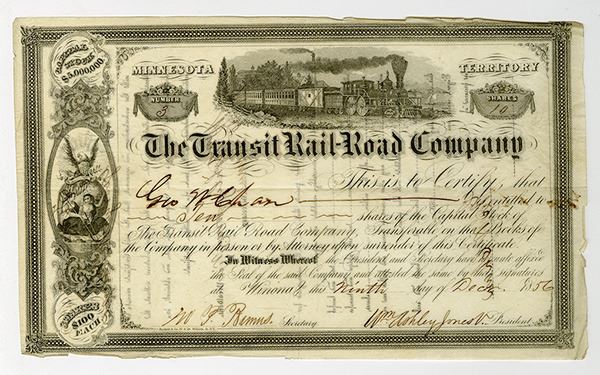 CAPITAL STOCK $5,000,000
MINNESOTA TERRITORY
NUMBER
3
SHARES
10
The Transit Rail-Road Company
This is to Certify, that
Geo W Chan is entitled to
Ten shares of the Capital Stock of
The Transit Rail Road Company, Transferable on the Books of
the Company in person or by Attorney upon surrender of this Certificate
In Witness Whereof the President and Secretary have affixed
the Seal of the said Company and attested the same by their signatures
at Winona this Ninth day of Decr 1856
Secretary Wm Ashley Jones President
SHARES $100 EACH